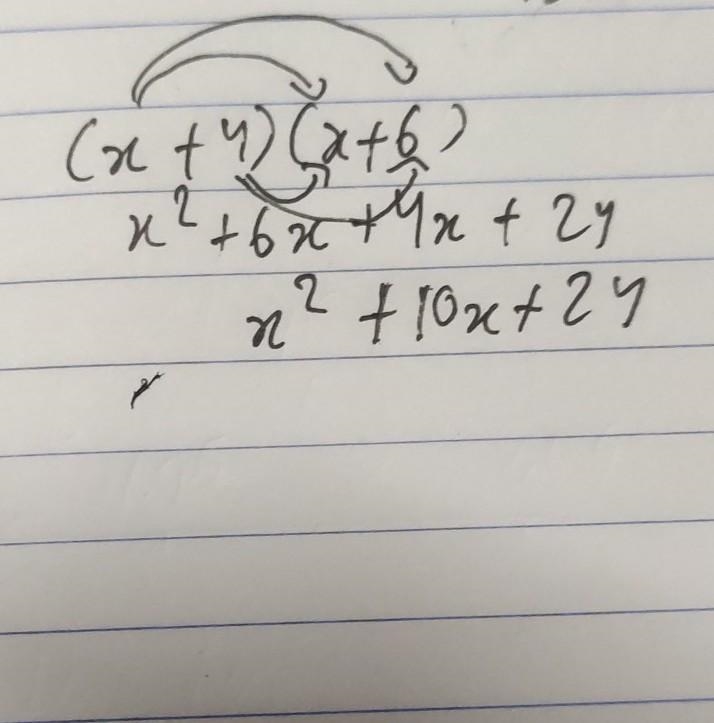 (x + 4)(x + 6)
x² + 6x + 4x + 24
x² + 10x + 24